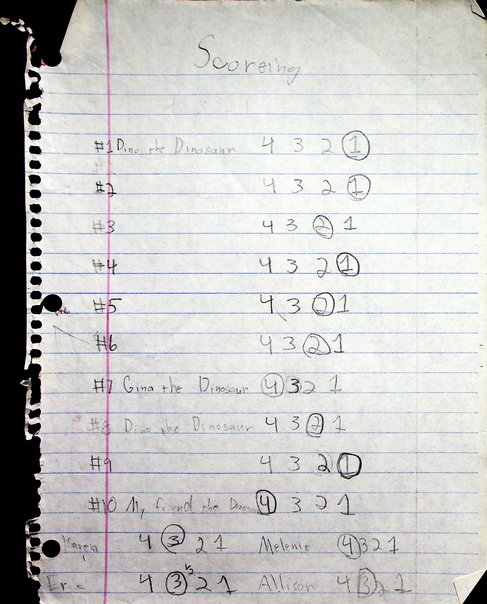 Scoreing
#1 Dino the Dinosaur 4 3 2 1
#2 4 3 2 1
#3 4 3 2 1
#4 4 3 2 1
#5 4 3 2 1
#6 4 3 2 1
#7 Gina the Dinosaur 4 3 2 1
#8 Dino the Dinosaur 4 3 2 1
#9 4 3 2 1
#10 My friend the 4 3 2 1
Karen 4 3 2 1 Melenie 4 3 2 1
Eric 4 3 1/2 2 1 Allison 4 3 2 1